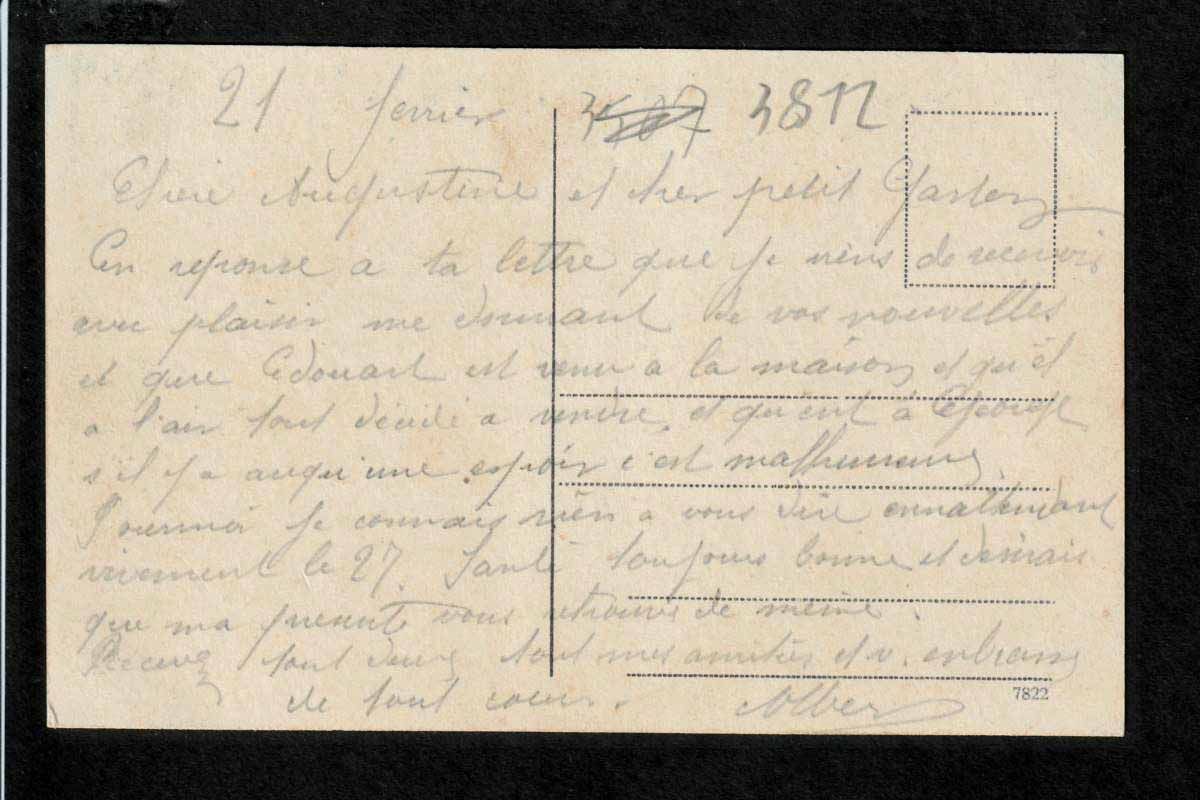 21 ferrier 3812
Cherie Augustine et cher petit Gaston
En reponse a ta lettre que je viens de recevoir
avec plaisir me donnant de vos nouvelles
et que Edouart est venu a la maison et qu'il
a l'air tout décidé a vendre, et qu'ent à George
s'il y a auqu'une espoir c'est malheureux.
Pourmoi je connais rien a vous dire enattendant
vivement le 27. Santé toujours bonne et désirais
que ma presente vous retrouve de même.
Recevez tout deux tout mes amitiés et v. enbrasse
de tout coeur. Alber
7822